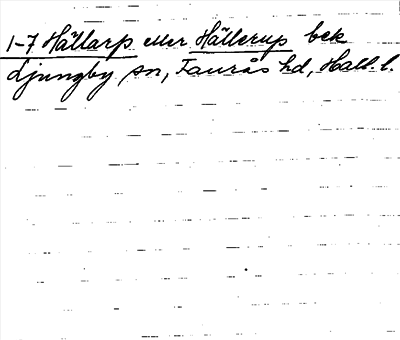 1-7 Hällarp eller Hällerup bek
Ljungby sn, Faurås hd, Hall. l.